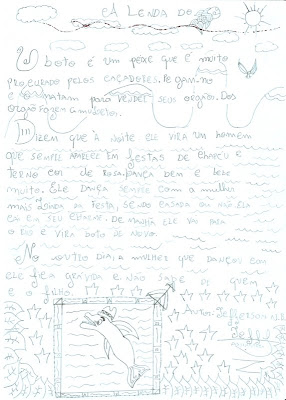 A LENDA DO
O boto é um peixe que é muito
procurado pelos caçadores. Pegam-no
e o matam para vender seus orgãos. Dos
orgão fazem amuleto.
Dizem que à noite ele vira um homem
que sempre aparece em festas de chapéu e
terno cor de rosa, dança bem e bebe
muito. Ele dança sempre com a mulher
mais linda da festa, sendo casada ou não. Ela
cai em seu encanto. De manhã ele vai para
o rio e vira boto de novo.
No outro dia, a mulher que dançou com
ele fica grávida e não sabe de quem
é o filho.
Autor: Jeferson